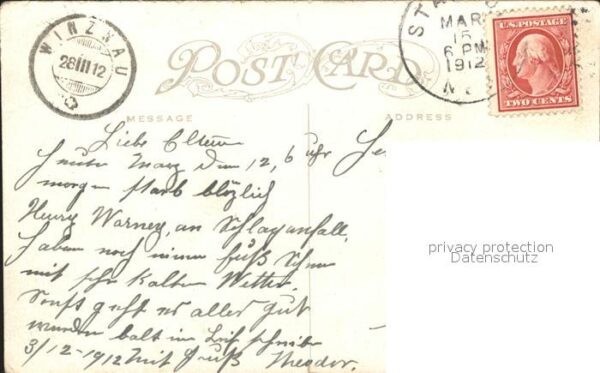 WINZNAU
28III12
POST CARD
STA
MAR
15
6 PM
1912
N.
U.S. POSTAGE
TWO CENTS
MESSAGE
ADDRESS
Liebe Eltern
heute Morgen den 12, 6 uhr
morgen starb blözlich
Henry Warnere, an Schlaganfall,
haben noch immer fuß Schnee
mit sehr kalten Wetter.
Sonst geht es alles gut
werden balt im Brif schreiben
3/12-1912 Mit Gruß Theodor.
privacy protection
Datenschutz